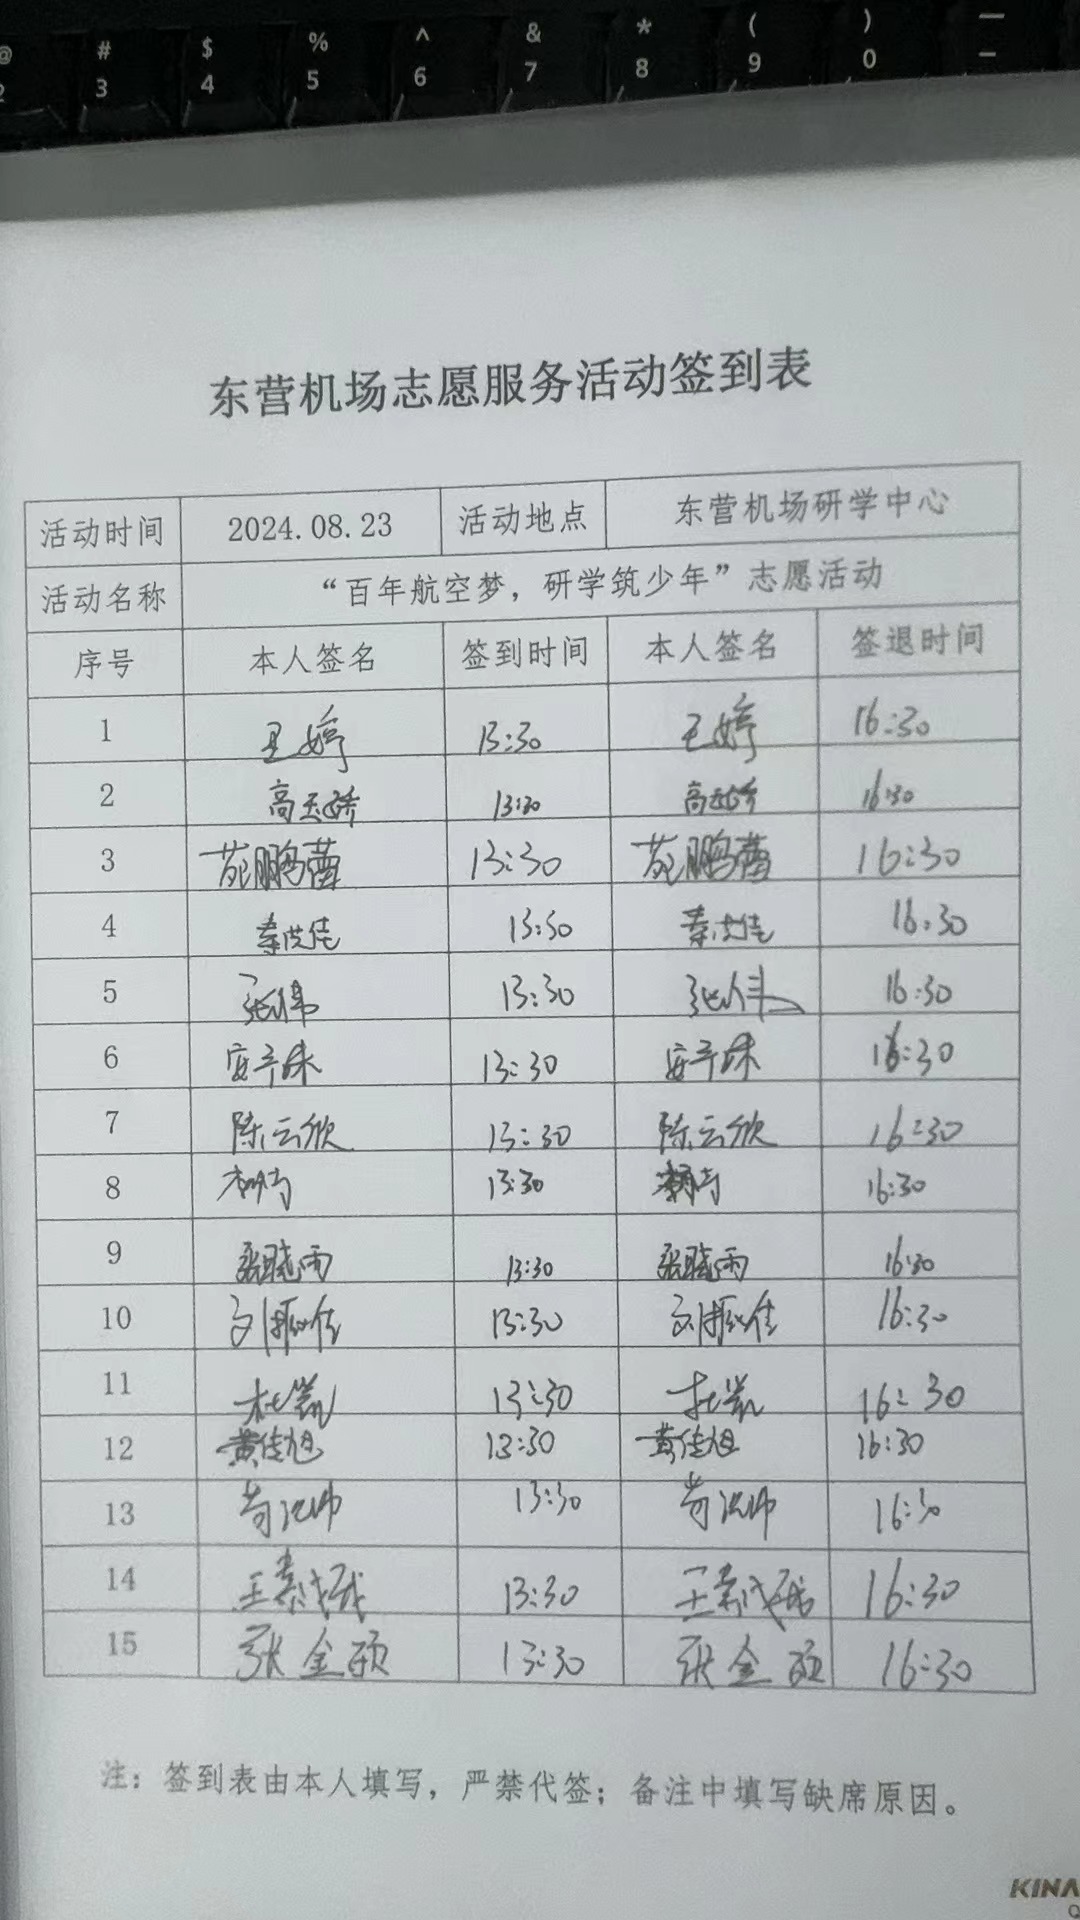 @ # $ % ^ & * ( ) —
2 3 4 5 6 7 8 9 0 –
东营机场志愿服务活动签到表
活动时间 2024.08.23 活动地点 东营机场研学中心
活动名称 “百年航空梦，研学筑少年”志愿活动
序号 本人签名 签到时间 本人签名 签退时间
1 王婷 13:30 王婷 16:30
2 高玉娇 13:30 高玉娇 16:30
3 苑鹏蕾 13:30 苑鹏蕾 16:30
4 秦洪佳 13:30 秦洪佳 16:30
5 张伟 13:30 张伟 16:30
6 13:30 16:30
7 陈云欣 13:30 陈云欣 16:30
8 13:30 16:30
9 张晓雨 13:30 张晓雨 16:30
10 刘振佳 13:30 刘振佳 16:30
11 杜凯 13:30 杜凯 16:30
12 黄佳旭 13:30 黄佳旭 16:30
13 13:30 16:30
14 13:30 16:30
15 张金硕 13:30 张金硕 16:30
注：签到表由本人填写，严禁代签；备注中填写缺席原因。
KINA
Q